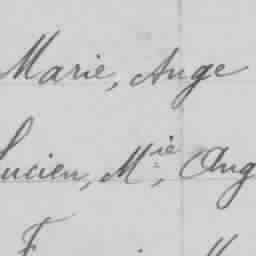 Marie, Ange
Lucien, Mie, Ang